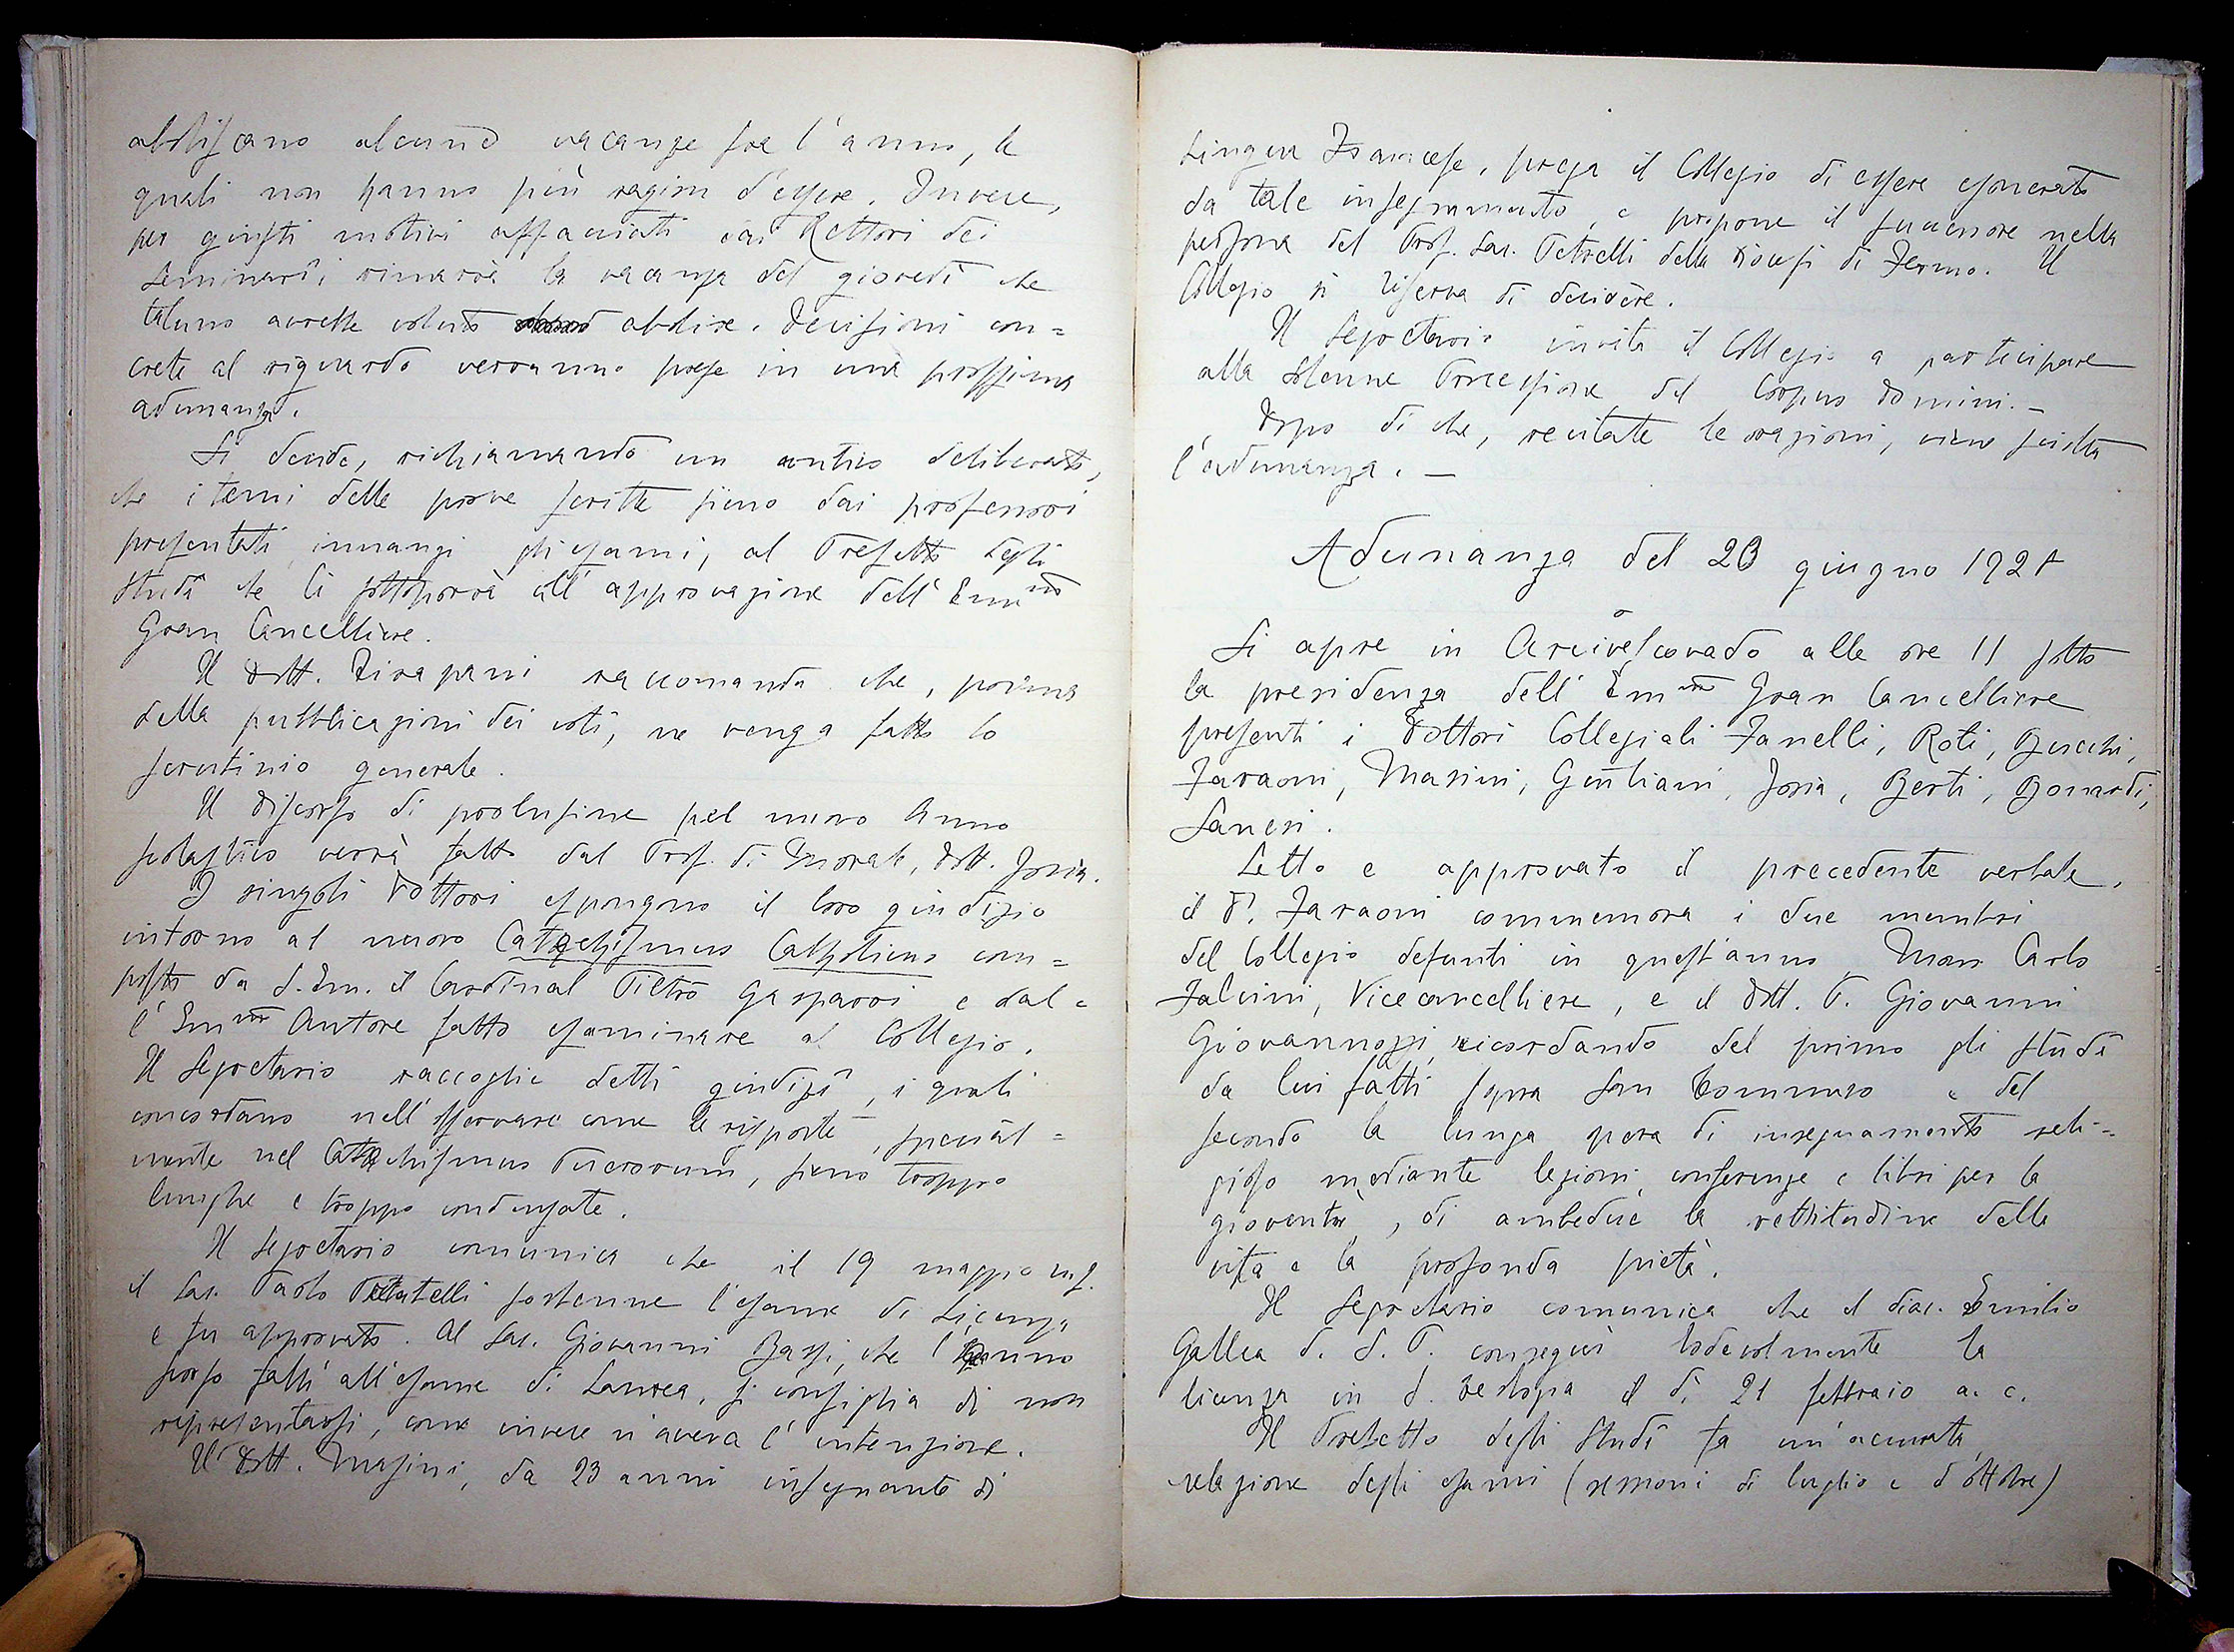 aboliscano alcune vacanze fra l'anno, le
quali non hanno più ragion d'essere. Invece,
per giusti motivi affacciati dai Rettori dei
Seminarî rimarrà la vacanza del giovedì che
taluno avrebbe voluto abolire. Decisioni con=
crete al riguardo verranno prese in una prossima
adunanza.
Si decide, richiamando un antico deliberato,
che i temi delle prove scritte sieno dai professori
presentati, innanzi gli esami, al Prefetto degli
Studî che li sottoporrà all'approvazione dell'Emmo
Gran Cancelliere.
Il Dott. Tirapani raccomanda che, prima
della pubblicazioni dei voti, ne venga fatto lo
scrutinio generale.
Il discorso di prolusione pel nuovo Anno
scolastico verrà fatto dal Prof. di Morale, Dott. Josia.
I singoli Dottori espongono il loro giudizio
intorno al nuovo Catechismus Catholicus com=
posto da S. Em. il Cardinal Pietro Gasparri e dal=
l'Emmo Autore fatto esaminare al Collegio.
Il Segretario raccoglie detti giudizî, i quali
concordano nell'osservare come le risposte, special=
mente nel Catechismus Puerorum, sieno troppo
lunghe e troppo condensate.
Il Segretario comunica che il 19 maggio u.s.
il Sac. Paolo Pratelli sostenne l'esame di Licenza
e fu approvato. Al Sac. Giovanni Bassi, che l'anno
scorso fallì all'esame di Laurea, si consiglia di non
ripresentarsi, come invece n'aveva l'intenzione.
Il Dott. Masini, da 23 anni insegnante di
Lingua Francese, prega il Collegio di essere esonerato
da tale insegnamento, e propone il successore nella
persona del Prof. Sac. Petrelli della Diocesi di Fermo. Il
Collegio si riserva di decidere.
Il Segretario invita il Collegio a partecipare
alla solenne Processione del Corpus Domini.-
Dopo di che, recitate le orazioni, viene sciolta
l'adunanza.-
Adunanza del 23 giugno 1928
Si apre in Arcivescovado alle ore 11 sotto
la presidenza dell'Emmo Gran Cancelliere
presenti i Dottori Collegiali Fanelli, Roti, Bucchi,
Faraoni, Masini, Giuliani, Josia, Berti, Bonardi,
Sanesi.
Letto e approvato il precedente verbale,
il D. Faraoni commemora i due membri
del Collegio defunti in quest'anno Mons Carlo
Falcini, Vicecancelliere, e il Dott. P. Giovanni
Giovannozzi, ricordando del primo gli studî
da lui fatti sopra San Tommaso e del
secondo la lunga opera di insegnamento reli=
gioso mediante lezioni, conferenze e libri per la
gioventù, di ambedue la rettitudine della
vita e la profonda pietà.
Il Segretario comunica che il diac. Emilio
Gallea d. S. P. conseguì lodevolmente la
licenza in S. Teologia il dì 21 febbraio a. c.
Il Prefetto degli Studî fa un'accurata
relazione degli esami (sessioni di luglio e d'ottobre)